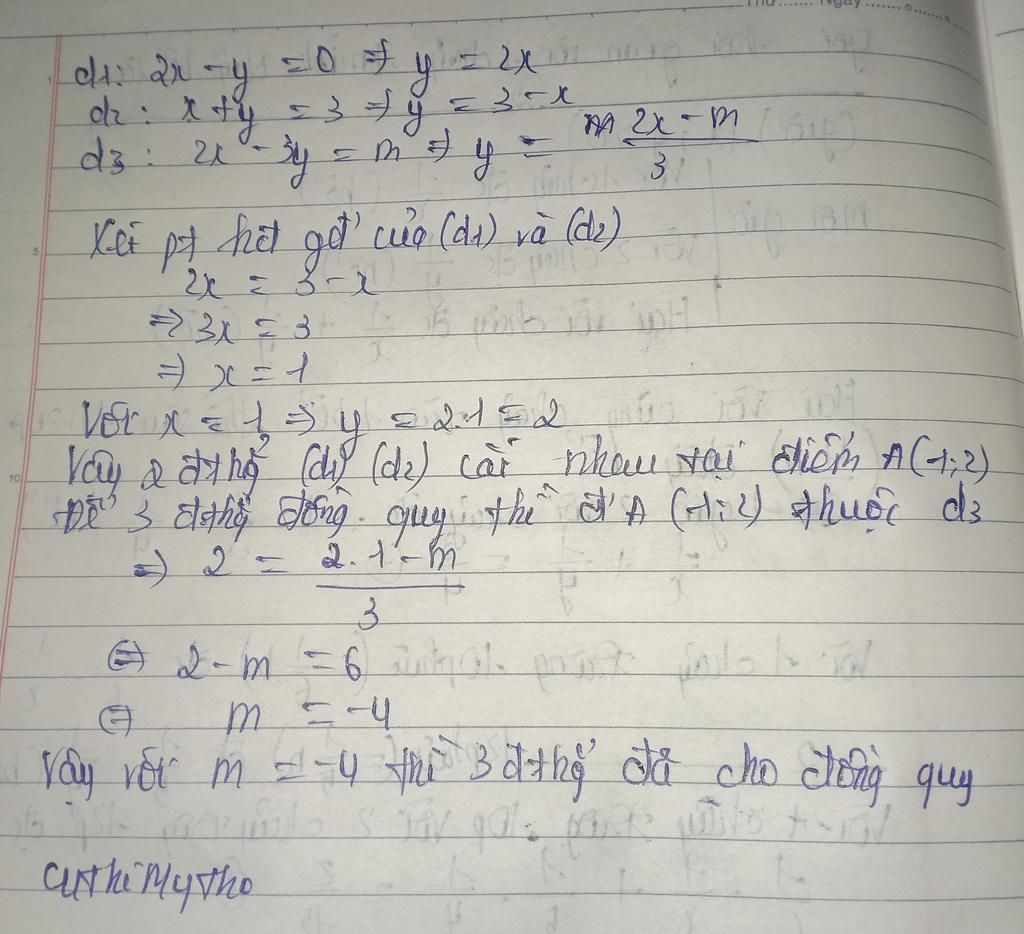 Thứ....... Ngày
d1: 2x - y = 0 => y = 2x
d2: x + y = 3 => y = 3 - x
d3: 2x - 3y = m => y = 2x - m / 3
Xét pt hđ gđ của (d1) và (d2)
2x = 3 - x
=> 3x = 3
=> x = 1
Với x = 1 => y = 2.1 = 2
Vậy 2 đthg (d1) (d2) cắt nhau tại điểm A(1;2)
Để 3 đthg đồng quy thì đ' A (1;2) thuộc d3
=> 2 = 2.1 - m / 3
<=> 2 - m = 6
<=> m = -4
Vậy với m = -4 thì 3 đthg đã cho đồng quy
CuthiMyTho